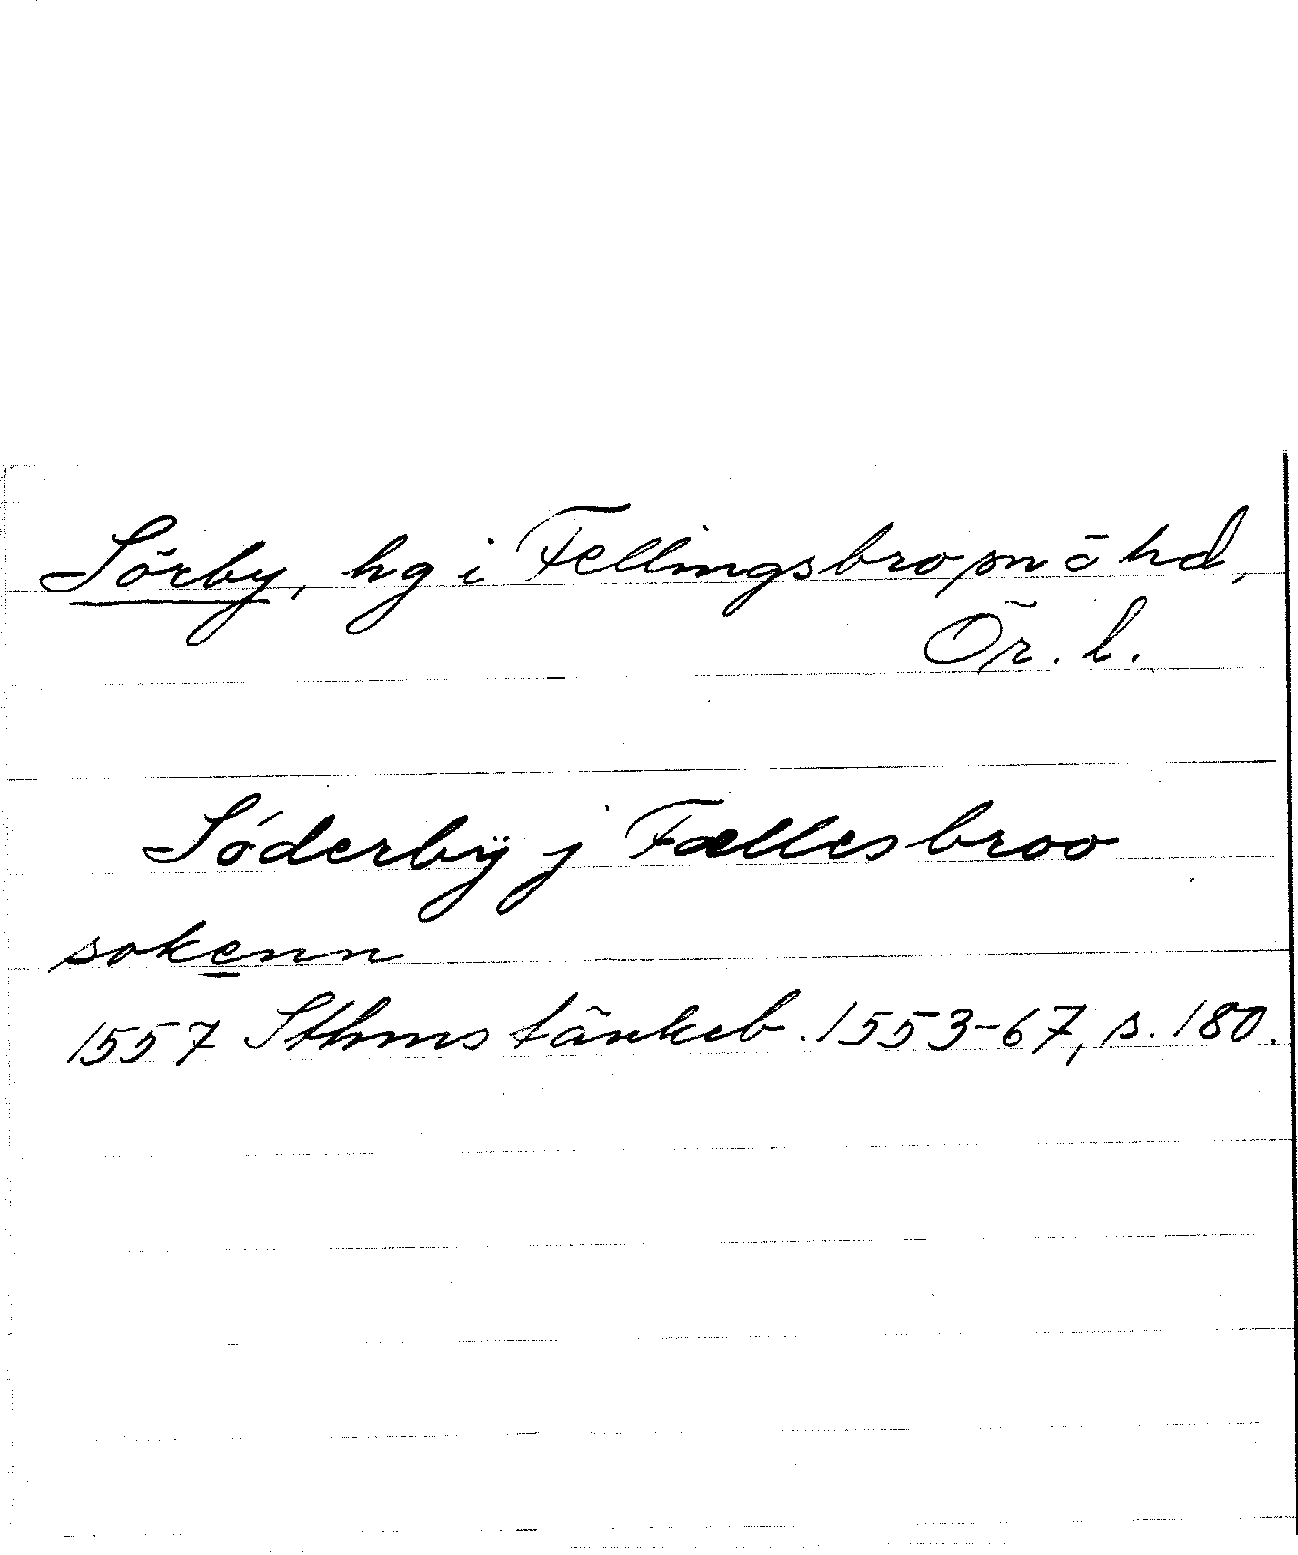 Sörby, hg i Fellingsbro sn o hd,
Ör. l.
Söderbÿ j Fællesbroo
sokenn
1557 Sthms tänkeb. 1553-67, s. 180.